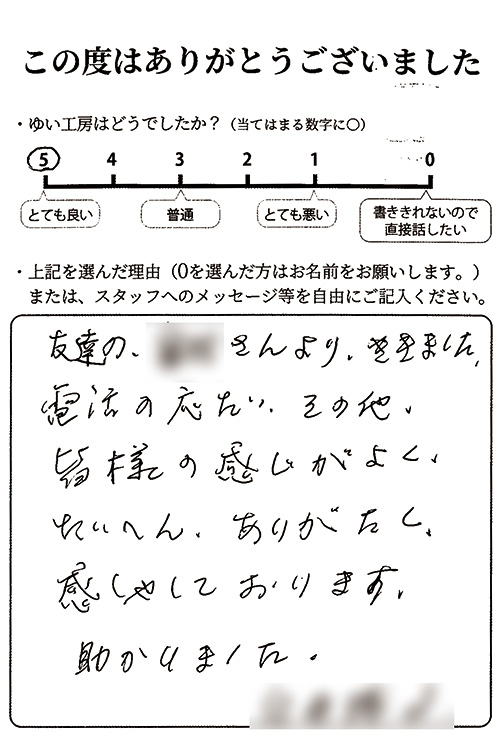 この度はありがとうございました
・ゆい工房はどうでしたか？（当てはまる数字に〇）
5 4 3 2 1 0
とても良い 普通 とても悪い 書ききれないので
直接話したい
・上記を選んだ理由（0を選んだ方はお名前をお願いします。）
または、スタッフへのメッセージ等を自由にご記入ください。
友達の、 さんより、ききました、
電話の応たい、その他、
皆様の感じがよく、
たいへん、ありがたく、
感しゃしております。
助かりました。